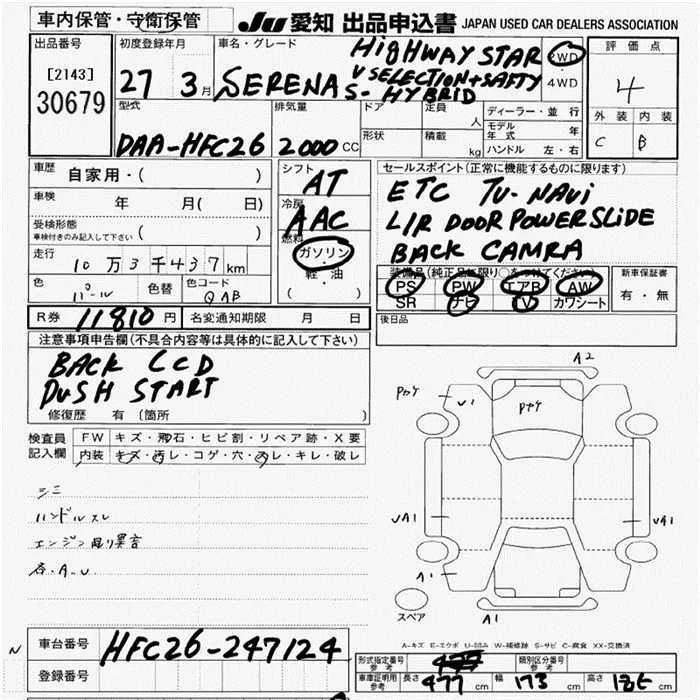 車内保管・守衛保管
JU 愛知 出品申込書 JAPAN USED CAR DEALERS ASSOCIATION
出品番号
[2143]
30679
初度登録年月
27 3月
車名・グレード
SERENA
HiGHWAY STAR
V SELECTION+SAFTY
S-HYBRID
2WD
・
4WD
評価点
4
外装 内装
C B
型式
DAA-HFC26
排気量
2000 CC
ドア
定員
人
形状
積載
kg
ディーラー・並行
モデル年式 年
ハンドル 左・右
車歴 自家用・( )
車検 年 月( 日)
受検形態
車検付きのみ記入して下さい ( )
走行 10万3千437km
色 パール 色替 色コード QAB
シフト
AT
冷房
AAC
燃料
ガソリン
・
軽油
( )
セールスポイント(正常に機能するものに限ります)
ETC TV-NAVi
L/R DOOR POWER SLiDE
BACK CAMRA
装備品(純正品に限り○をつけてください)
PS PW エアB AW
SR ナビ TV カワシート
新車保証書
有・無
R券 11810円 名変通知期限 月 日
後日品
注意事項申告欄(不具合内容等は具体的に記入して下さい)
BACK CCD
PuSH START
修復歴 有 (箇所
検査員
記入欄
FW キズ・飛石・ヒビ割・リペア跡・X要
内装 キズ・汚レ・コゲ・穴・スレ・キレ・破レ
ハンドルスレ
エンジン廻り異音
各・A.U
A2
U1
UA1
UA1
A1
A1
スペア
A-キズ E-エクボ U-凹み W-補修跡 S-サビ C-腐食 XX-交換済
車台番号 HFC26-247124
登録番号
型式指定番号 参考
類別区分番号 参考
車庫証明用 参考 長さ 477 cm 幅 173 cm 高さ 186 cm